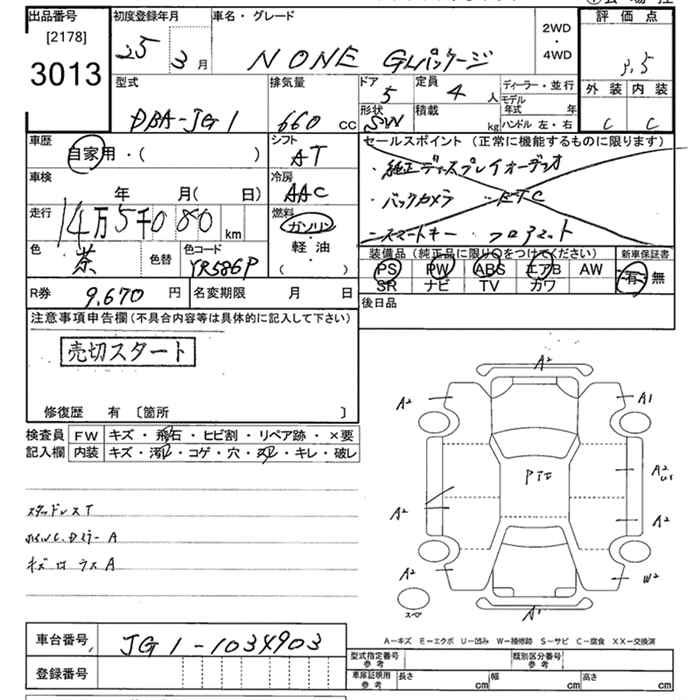 出品番号
[2178]
3013
初度登録年月
25 3月
車名・グレード
N ONE Gパッケージ
2WD
・
4WD
評価点
3.5
外装 内装
C C
型式
DBA-JG1
排気量
660 CC
ドア
5
定員
4 人
形状
SW
積載
kg
ディーラー・並行
モデル
年式 年
ハンドル 左・右
車歴
自家用・( )
シフト
AT
車検
年 月(日)
冷房
AAC
走行
14万5千080 km
燃料
ガソリン
軽・油
( )
色
茶
色替
色コード
YR586P
セールスポイント (正常に機能するものに限ります)
・純正ディスプレイオーディオ
・バックカメラ ・ETC
・スマートキー ・フロアマット
装備品(純正品に限り〇をつけてください)
PS PW ABS エアB AW
SR ナビ TV カワ
新車保証書
有・無
R券
9,670 円
名変期限 月 日
後日品
注意事項申告欄(不具合内容等は具体的に記入して下さい)
売切スタート
修復歴 有 〔箇所 〕
検査員
記入欄
FW キズ・飛石・ヒビ割・リペア跡・×要
内装 キズ・汚れ・コゲ・穴・スレ・キレ・破レ
スタッドレスT
A
キズ A
A2
A2
A1
A2
A2
A2
A2
W2
A1
スペ
A−キズ E−エクボ U−凹み W−補修跡 S−サビ C−腐食 XX−交換済
車台番号
JG1-1034903
登録番号
型式指定番号
参考
類別区分番号
参考
車庫証明用
参考
長さ cm 幅 cm 高さ cm